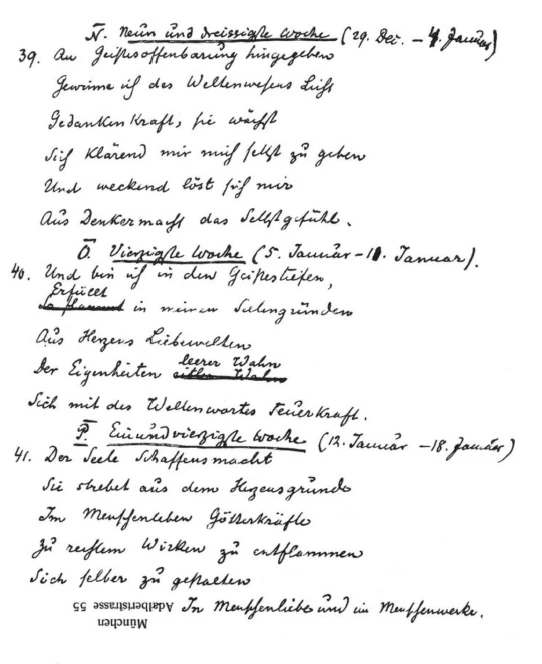 N̄. Neun und dreissigste Woche (29. Dec. – 4. Januar)
39. An Geistesoffenbarung hingegeben
Gewinne ich des Weltenwesens Licht
Gedankenkraft, sie wächst
Sich klärend mir mich selbst zu geben
Und weckend löst sich mir
Aus Denkermacht das Selbstgefühl.
Ō. Vierzigste Woche (5. Januar – 11. Januar).
40. Und bin ich in den Geistestiefen,
Erfüllt
in meinen Seelengründen
Aus Herzens Liebewelten
leerer Wahn
Der Eigenheiten eitler Wahn
Sich mit des Weltenwortes Feuerkraft.
P̄. Ein und vierzigste Woche (12. Januar – 18. Januar)
41. Der Seele Schaffensmacht
Sie strebet aus dem Herzensgrunde
Im Menschenleben Götterkräfte
Zu rechtem Wirken zu entflammen
Sich selber zu gestalten
In Menschenliebe und im Menschenwerke.
München
Adalbertstrasse 55